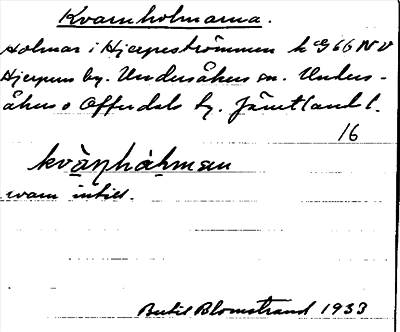 Kvarnholmarna.
Holmar i Hjerpeströmmen k eg 66 NV
Hjerpens by. Undersåkers sn. Unders-
åkers o Offerdals tg. Jämtlands l.
16
kvàṇhàḥmen
kvarn intill.
Bertil Blomstrand 1933